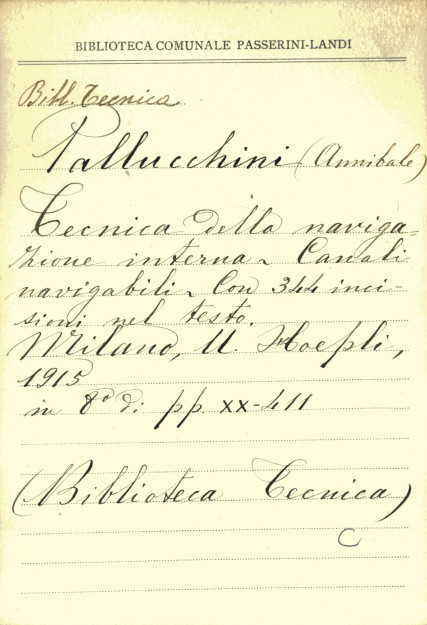 BIBLIOTECA COMUNALE PASSERINI-LANDI
Bibl. Tecnica
Pallucchini (Annibale)
Tecnica della naviga-
zione interna - Canali
navigabili - Con 344 inci-
sioni nel testo.
Milano, U. Hoepli,
1915
in 8º di pp xx-411
(Biblioteca Tecnica)
C